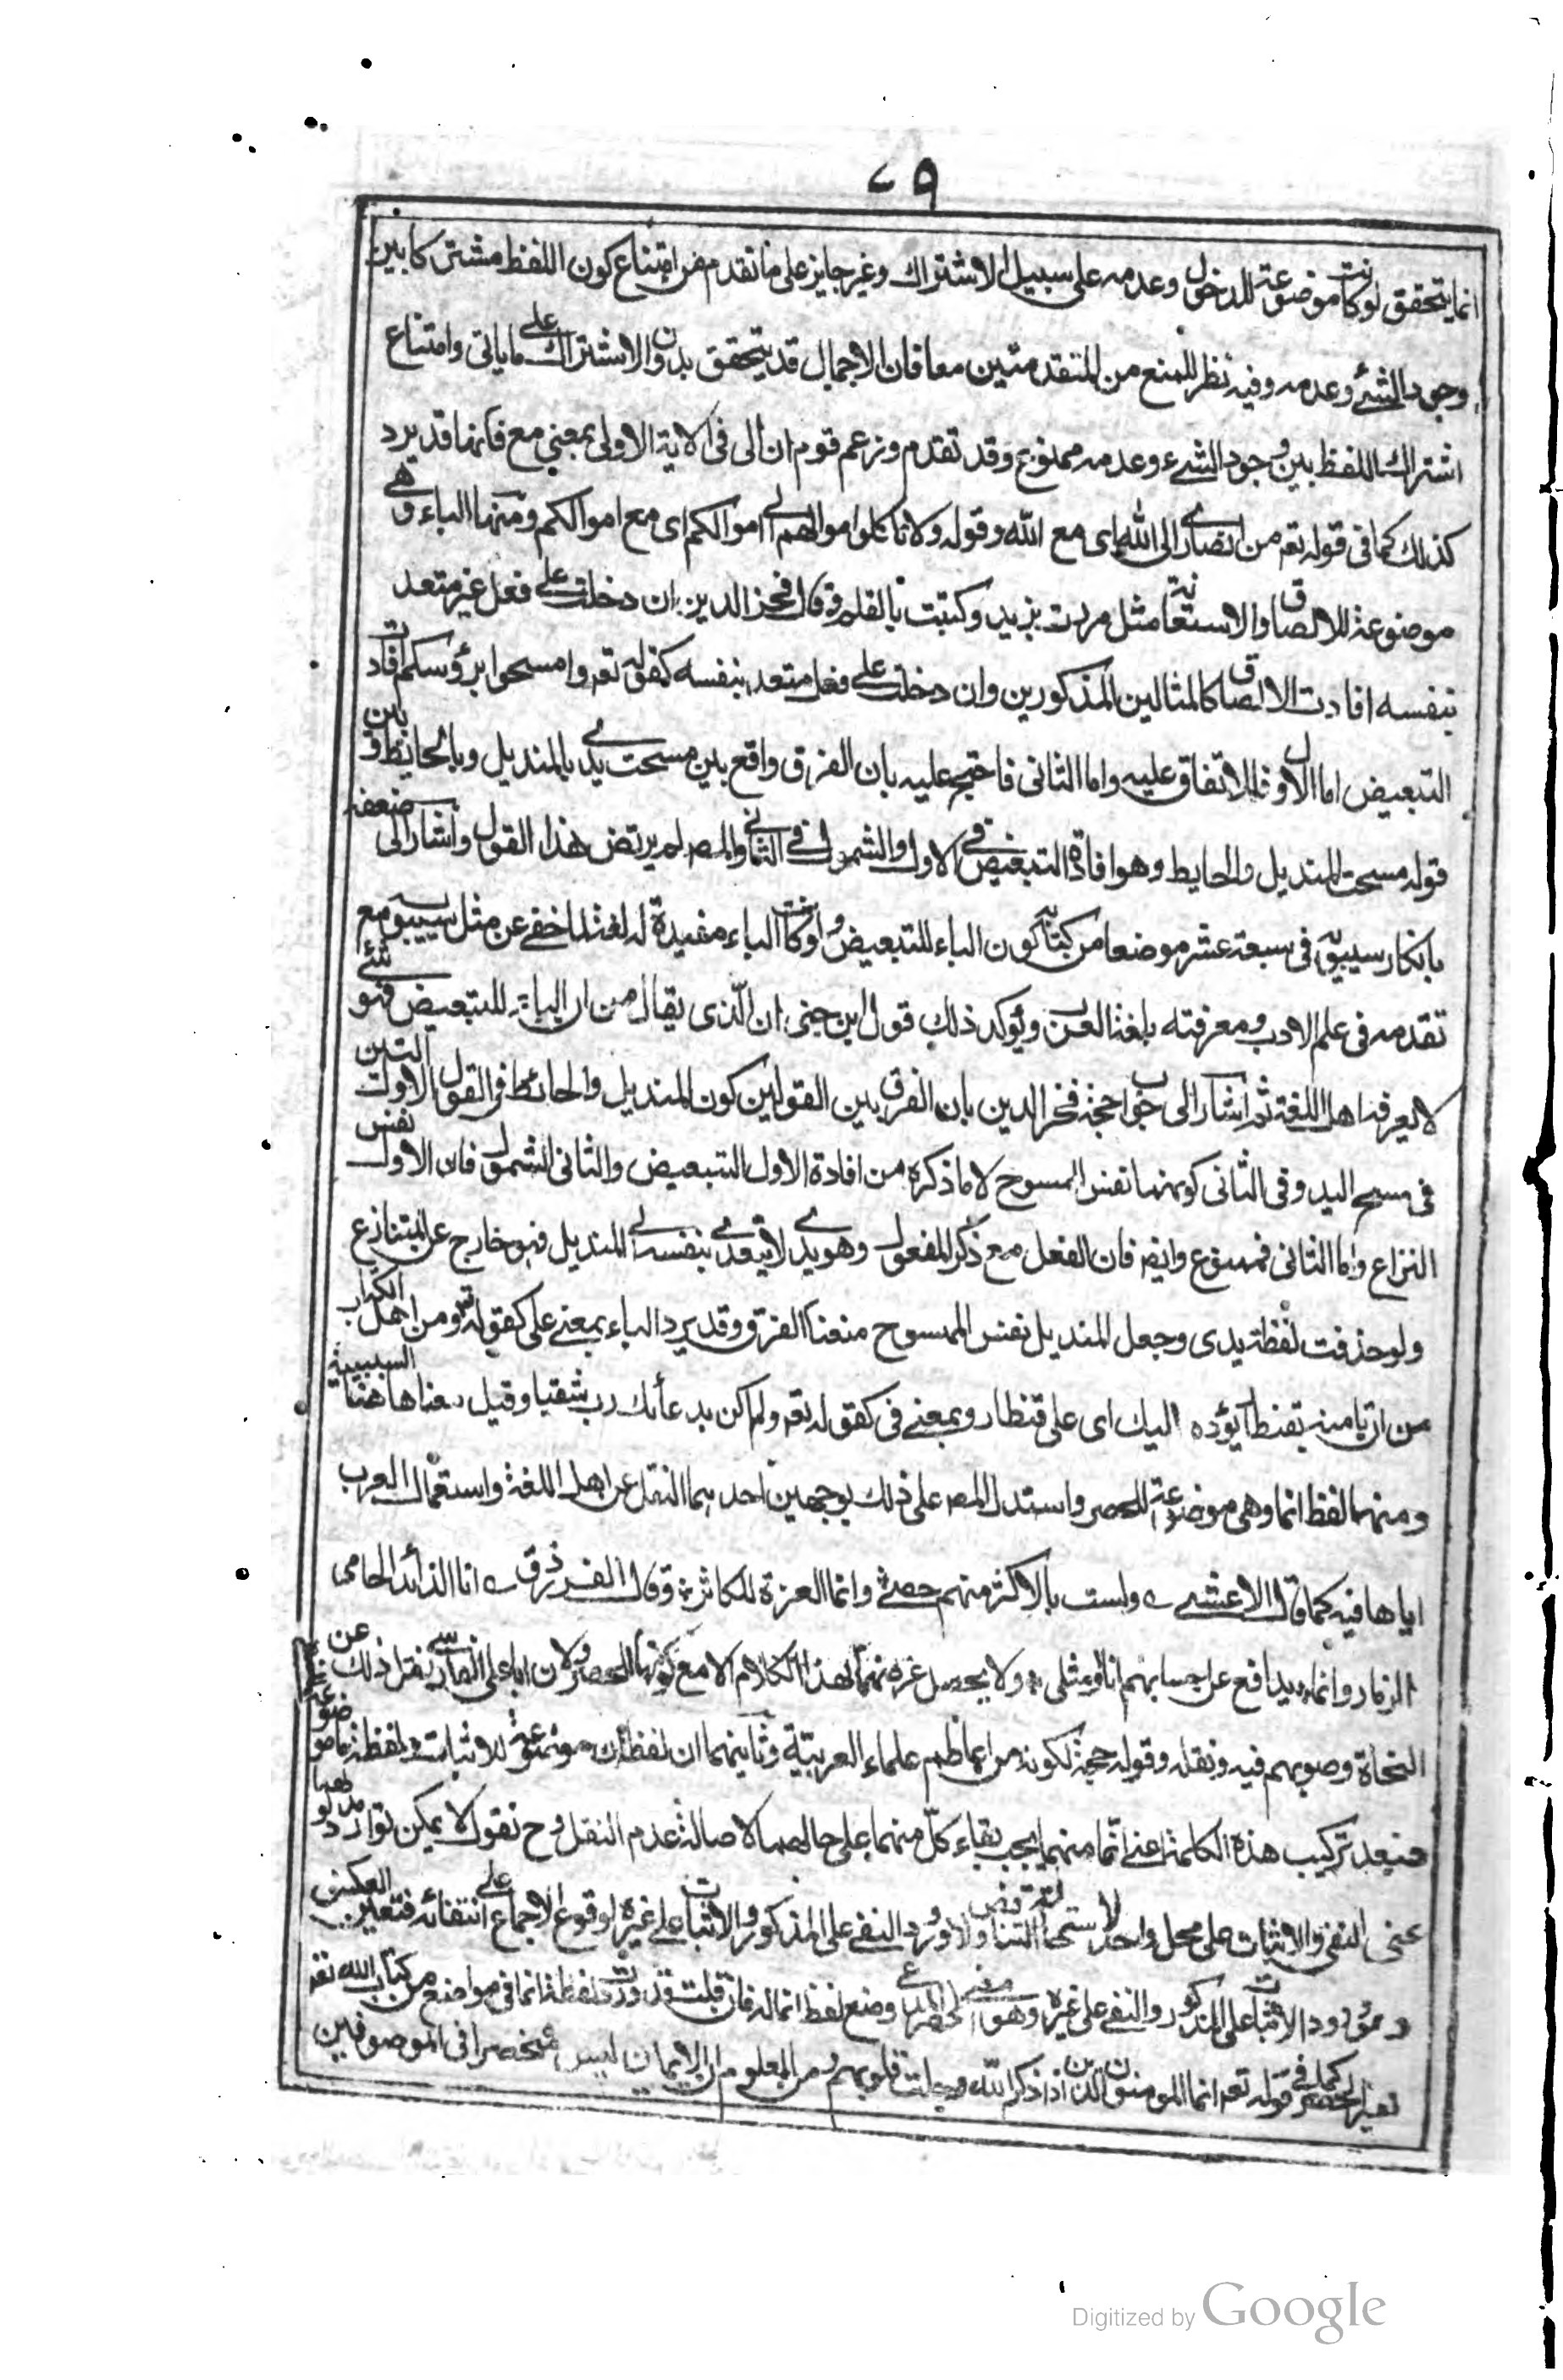 ٧٩
انما يتحقق لو كانت موضوعة للدخول وعدمه على سبيل الاشتراك وغير جايز على ما تقدم من امتناع كون اللفظ مشتركا بين
وجود الشئ وعدمه وفيه نظر للمنع من المتقدمتين معا فان الاجمال قد يتحقق بدون الاشتراك على ما ياتى وامتناع
اشتراك اللفظ بين وجود الشئ وعدمه ممنوع وقد تقدم وزعم قوم ان الى فى الاية الاولى بمعنى مع فانها قد يرد
كذلك كما فى قوله تعم من انصارى الى الله اى مع الله وقوله ولا تاكلوا اموالهم الى اموالكم اى مع اموالكم ومنها الباء وهى
موضوعة للالصاق والاستعانة مثل مررت بزيد وكتبت بالقلم وقال فخر الدين ان دخلت على فعل غير متعد
بنفسه افادت الالصاق كالمثالين المذكورين وان دخلت على فعل متعد بنفسه كقوله تعم وامسحوا برؤسكم افادت
التبعيض اما الاول فللاتفاق عليه واما الثانى فاحتج عليه بان الفرق واقع بين مسحت يدى بالمنديل وبالحايط وبين
قوله مسحت المنديل والحايط وهو افادة التبعيض فى الاول والشمول فى الثانى والمصـ لم يرتض هذا القول واشار الى ضعفه
بانكار سيبويه فى سبعة عشر موضعا من كتابه كون الباء للتبعيض ولو كانت الباء مفيدة له لغة لما خفى عن مثل سيبويه مع
تقدمه فى علم الادب ومعرفته بلغة العرب ويؤكد ذلك قول ابن جنى ان الذى يقال من ان الباء للتبعيض فهو شئ
لا يعرفه اهل اللغة ثم اشار الى جواب حجة فخر الدين بان الفرق بين القولين كون المنديل والحائط فى القول الاول التين
فى مسح اليد وفى الثانى كونهما نفس الممسوح لا ما ذكره من افادة الاول التبعيض والثانى الشمول فان الاول نفس
النزاع واما الثانى فممنوع وايضا فان الفعل مع ذكر المفعول وهو يدى لا يتعدى بنفسه الى المنديل فهو خارج عن المتنازع
ولو حذفت لفظة يدى وجعل المنديل نفس الممسوح منعنا الفرق وقد يرد الباء بمعنى على كقوله تع ومن اهل الكتاب
من ان تامنه بقنطار يؤده اليك اى على قنطار وبمعنى فى كقوله تعم ولم اكن بدعائك رب شقيا وقيل معناها هنا السببية
ومنها لفظ انما وهى موضوعة للحصر واستدل المصـ على ذلك بوجهين احدهما النقل عن اهل اللغة واستعمال العرب
اياها فيه كما قال الاعشى ولست بالاكثر منهم حصى وانما العزة للكاثر وقال الفرزدق انا الذائد الحامى
الذمار وانما يدافع عن احسابهم انا او مثلى ولا يحصل غرضهما بهذا الكلام الا مع كونها للحصر ولان ابا على الفارسى نقل ذلك عن
النحاة وصوبهم فيه ونقله وقوله حجة لكونه من اعاظم علماء العربية وثانيهما ان لفظة ان موضوعة للاثبات ولفظة ما موضوعة
فبعد تركيب هذه الكلمة اعنى انما منهما يجب بقاء كل منهما على حالهما لاصالة عدم النقل وح نقول لا يمكن توارد مدلوليهما
اعنى النفى والاثبات على محل واحد لاستحالة التناقض ولا ورود النفى على المذكور والاثبات على غيره لوقوع الاجماع على انتفائه فتعين العكس
وهو ورود الاثبات على المذكور والنفى على غيره وهو معنى الحصر المدعى وضع لفظ انما له فان قلت قد وردت لفظة انما فى مواضع من كتاب الله تعم
لغير الحصر كما فى قوله تعم انما المومنون الذين اذا ذكر الله وجلت قلوبهم ومن المعلوم ان الايمان ليس منحصرا فى الموصوفين
Digitized by Google